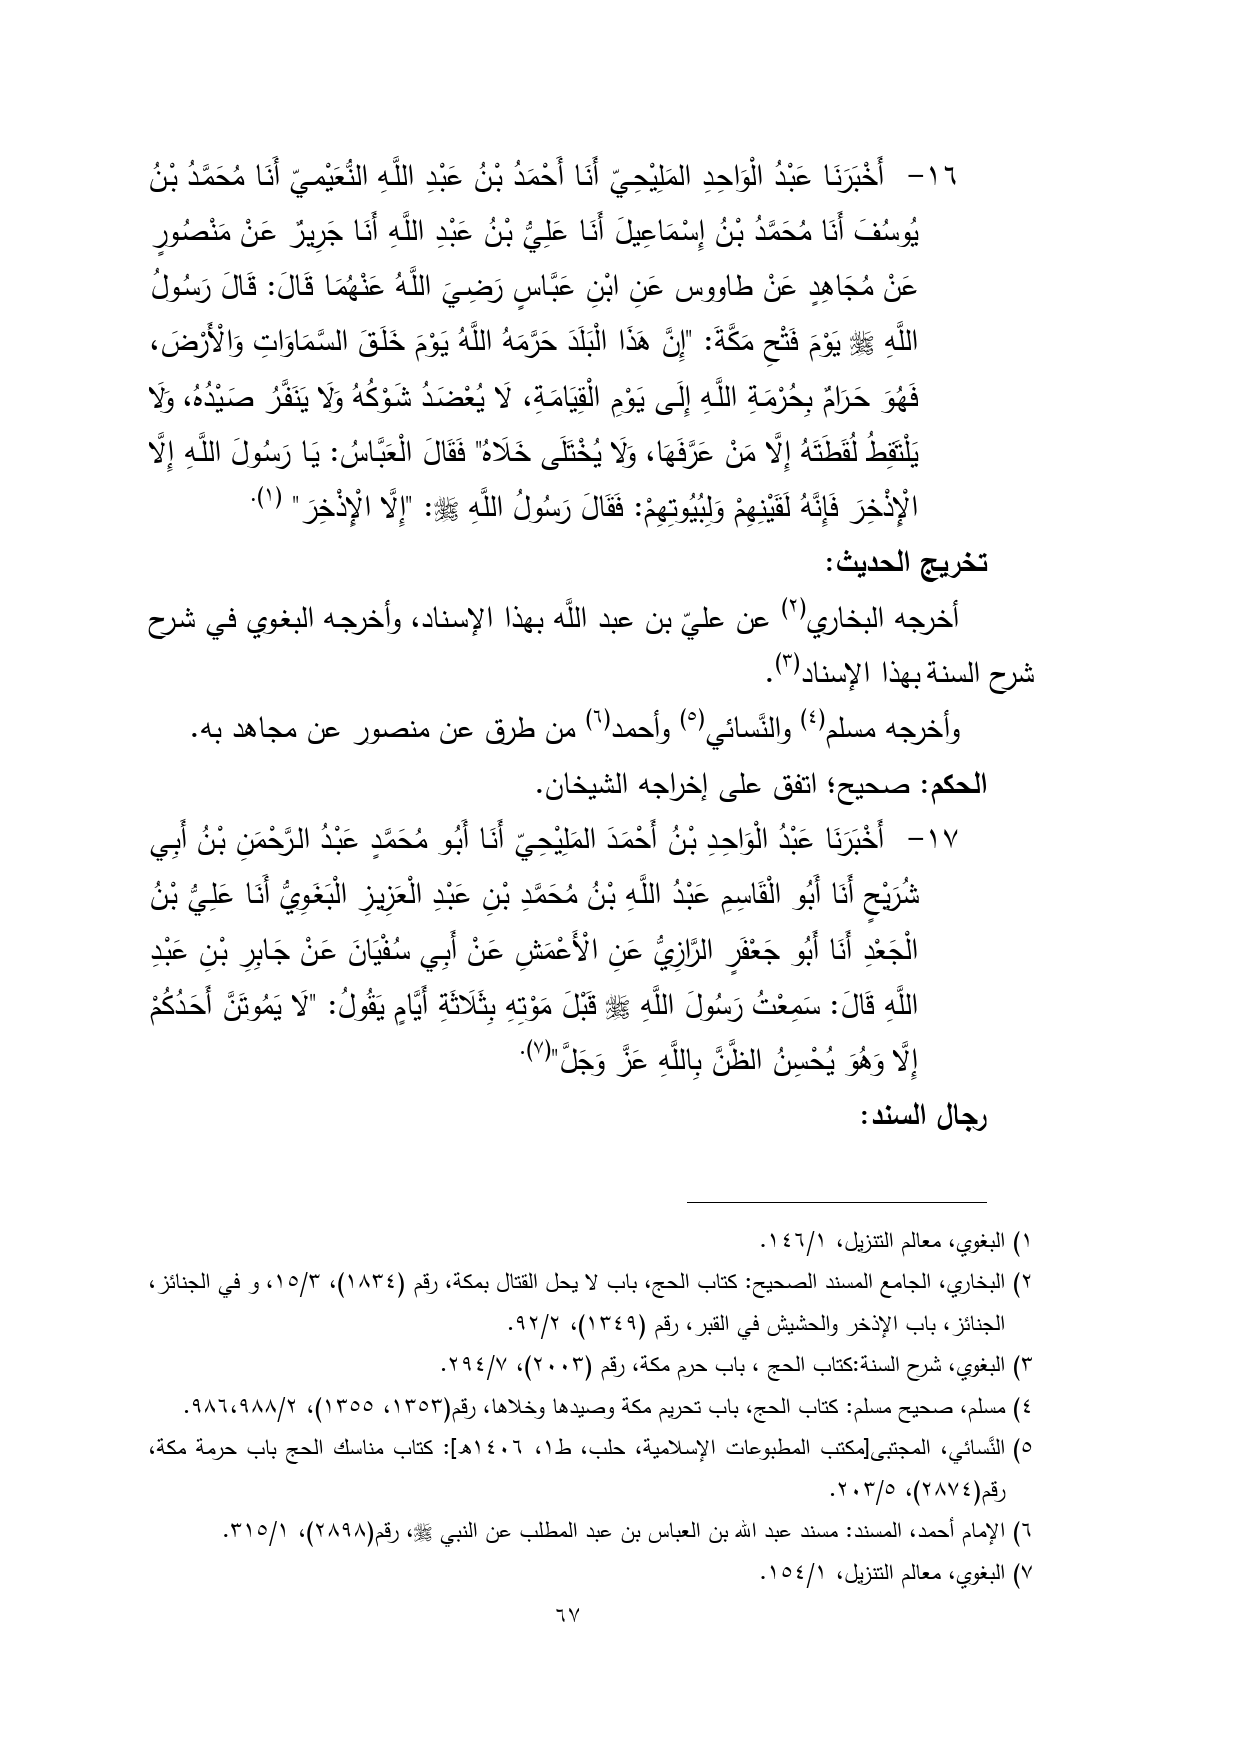 ١٦- أَخْبَرَنَا عَبْدُ الْوَاحِدِ المَلِيْحِيّ أَنَا أَحْمَدُ بْنُ عَبْدِ اللَّهِ النُّعَيْميّ أَنَا مُحَمَّدُ بْنُ
يُوسُفَ أَنَا مُحَمَّدُ بْنُ إِسْمَاعِيلَ أَنَا عَلِيُّ بْنُ عَبْدِ اللَّهِ أَنَا جَرِيرٌ عَنْ مَنْصُورٍ
عَنْ مُجَاهِدٍ عَنْ طاووس عَنِ ابْنِ عَبَّاسٍ رَضِيَ اللَّهُ عَنْهُمَا قَالَ: قَالَ رَسُولُ
اللَّهِ ﷺ يَوْمَ فَتْحِ مَكَّةَ: "إِنَّ هَذَا الْبَلَدَ حَرَّمَهُ اللَّهُ يَوْمَ خَلَقَ السَّمَاوَاتِ وَالْأَرْضَ،
فَهُوَ حَرَامٌ بِحُرْمَةِ اللَّهِ إِلَى يَوْمِ الْقِيَامَةِ، لَا يُعْضَدُ شَوْكُهُ وَلَا يَنَفَّرُ صَيْدُهُ، وَلَا
يَلْتَقِطُ لُقَطَتَهُ إِلَّا مَنْ عَرَّفَهَا، وَلَا يُخْتَلَى خَلَاهُ" فَقَالَ الْعَبَّاسُ: يَا رَسُولَ اللَّهِ إِلَّا
الْإِذْخِرَ فَإِنَّهُ لَقَيْنِهِمْ وَلِبُيُوتِهِمْ: فَقَالَ رَسُولُ اللَّهِ ﷺ: "إِلَّا الْإِذْخِرَ" (١).
تخريج الحديث:
أخرجه البخاري(٢) عن عليّ بن عبد اللَّه بهذا الإسناد، وأخرجه البغوي في شرح
شرح السنة بهذا الإسناد(٣).
وأخرجه مسلم(٤) والنَّسائي(٥) وأحمد(٦) من طرق عن منصور عن مجاهد به.
الحكم: صحيح؛ اتفق على إخراجه الشيخان.
١٧- أَخْبَرَنَا عَبْدُ الْوَاحِدِ بْنُ أَحْمَدَ المَلِيْحِيّ أَنَا أَبُو مُحَمَّدٍ عَبْدُ الرَّحْمَنِ بْنُ أَبِي
شُرَيْحٍ أَنَا أَبُو الْقَاسِمِ عَبْدُ اللَّهِ بْنُ مُحَمَّدِ بْنِ عَبْدِ الْعَزِيزِ الْبَغَوِيُّ أَنَا عَلِيُّ بْنُ
الْجَعْدِ أَنَا أَبُو جَعْفَرٍ الرَّازِيُّ عَنِ الْأَعْمَشِ عَنْ أَبِي سُفْيَانَ عَنْ جَابِرِ بْنِ عَبْدِ
اللَّهِ قَالَ: سَمِعْتُ رَسُولَ اللَّهِ ﷺ قَبْلَ مَوْتِهِ بِثَلَاثَةِ أَيَّامٍ يَقُولُ: "لَا يَمُوتَنَّ أَحَدُكُمْ
إِلَّا وَهُوَ يُحْسِنُ الظَّنَّ بِاللَّهِ عَزَّ وَجَلَّ"(٧).
رجال السند:
١) البغوي، معالم التنزيل، ١٤٦/١.
٢) البخاري، الجامع المسند الصحيح: كتاب الحج، باب لا يحل القتال بمكة، رقم (١٨٣٤)، ١٥/٣، و في الجنائز،
الجنائز، باب الإذخر والحشيش في القبر، رقم (١٣٤٩)، ٩٢/٢.
٣) البغوي، شرح السنة:كتاب الحج ، باب حرم مكة، رقم (٢٠٠٣)، ٢٩٤/٧.
٤) مسلم، صحيح مسلم: كتاب الحج، باب تحريم مكة وصيدها وخلاها، رقم(١٣٥٣، ١٣٥٥)، ٩٨٦،٩٨٨/٢.
٥) النَّسائي، المجتبى[مكتب المطبوعات الإسلامية، حلب، ط١، ١٤٠٦هـ]: كتاب مناسك الحج باب حرمة مكة،
رقم(٢٨٧٤)، ٢٠٣/٥.
٦) الإمام أحمد، المسند: مسند عبد الله بن العباس بن عبد المطلب عن النبي ﷺ، رقم(٢٨٩٨)، ٣١٥/١.
٧) البغوي، معالم التنزيل، ١٥٤/١.
٦٧